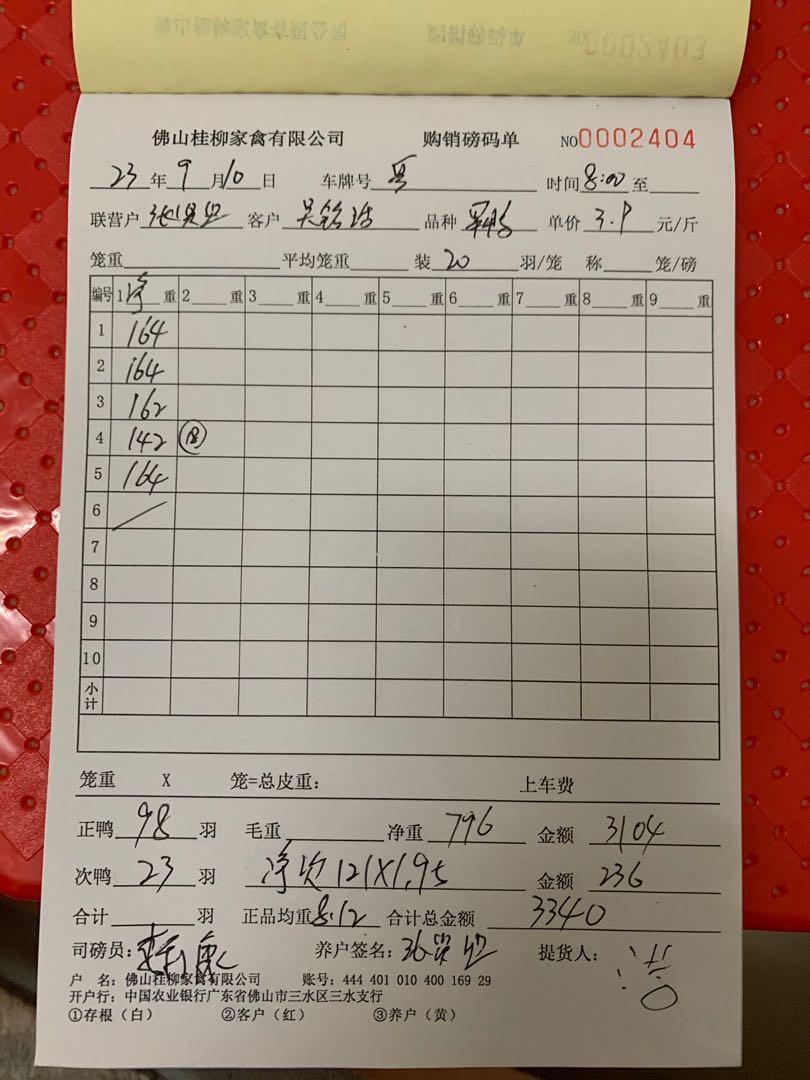 佛山桂柳家禽有限公司 购销磅码单 NO 0002404
23 年 9 月 10 日 车牌号 时间 8:00 至
联营户 客户 品种 单价 3.9 元/斤
笼重 平均笼重 装 20 羽/笼 称 笼/磅
编号 1 净 重 2 重 3 重 4 重 5 重 6 重 7 重 8 重 9 重
1 164
2 164
3 162
4 142 (18)
5 164
6
7
8
9
10
小计
笼重 X 笼=总皮重: 上车费
正鸭 98 羽 毛重 净重 796 金额 3104
次鸭 23 羽 净次 121X1.95 金额 236
合计 羽 正品均重 8.12 合计总金额 3340
司磅员: 养户签名: 提货人:
户 名: 佛山桂柳家禽有限公司 账号: 444 401 010 400 169 29
开户行: 中国农业银行广东省佛山市三水区三水支行
①存根(白) ②客户(红) ③养户(黄)